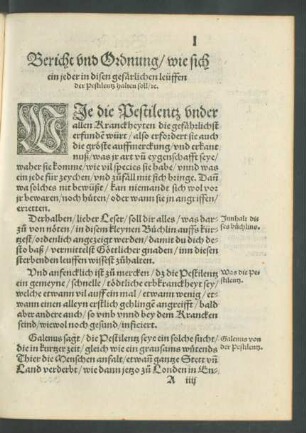 1
Bericht vnd Ordnung / wie sich
ein jeder in disen gefärlichen leüffen
der Pestilentz halten soll / ꝛc.
WJe die Pestilentz vnder
allen Kranckheyten die gefährlichst
erfunde würt / also erfordert sie auch
die gröste auffmerckung / vnd erkant
nuß / was jr art vñ eygenschafft seye /
waher sie komme / wie vil species sie habe / vnnd was
ein jede für zeychen / vnd zůfäll mit sich bringe. Dañ
wa solches nit bewüßt / kan niemande sich wol vor
jr bewaren / noch hüten / oder wann sie jn angriffen /
erretten.
Derhalben / lieber Leser / soll dir alles / was dar-
zů von nöten / in disem kleynen Büchlin auffs kürt-
zest / ordenlich angezeygt werden / damit du dich de-
sto baß / vermittelst Göttlicher gnaden / inn disen
sterbenden leuffen wissest zůhalten.
Jnnhalt die-
ses büchlins.
Vnd anfencklich ist zů mercken / dz die Pestilentz
ein gemeyne / schnelle / tödtliche erbkranckheyt sey /
welche etwann vil auff ein mal / etwann wenig / et-
wann einen alleyn erstlich gehlingë angreifft / bald
aber andere auch / so vmb vnnd bey dem Krancken
seind / wiewol noch gesund / inficiert.
Was die Pe-
stilentz.
Galenus sagt / die Pestilentz seye ein solche sucht /
die in kurtzer zeit / gleich wie ein grausams wütends
Thier die Menschen anfalt / etwañ gantze Stett vñ
Land verderbt / wie dann jetzo zů Londen in En-
Galenus von
der Pestilentz.
A iiij